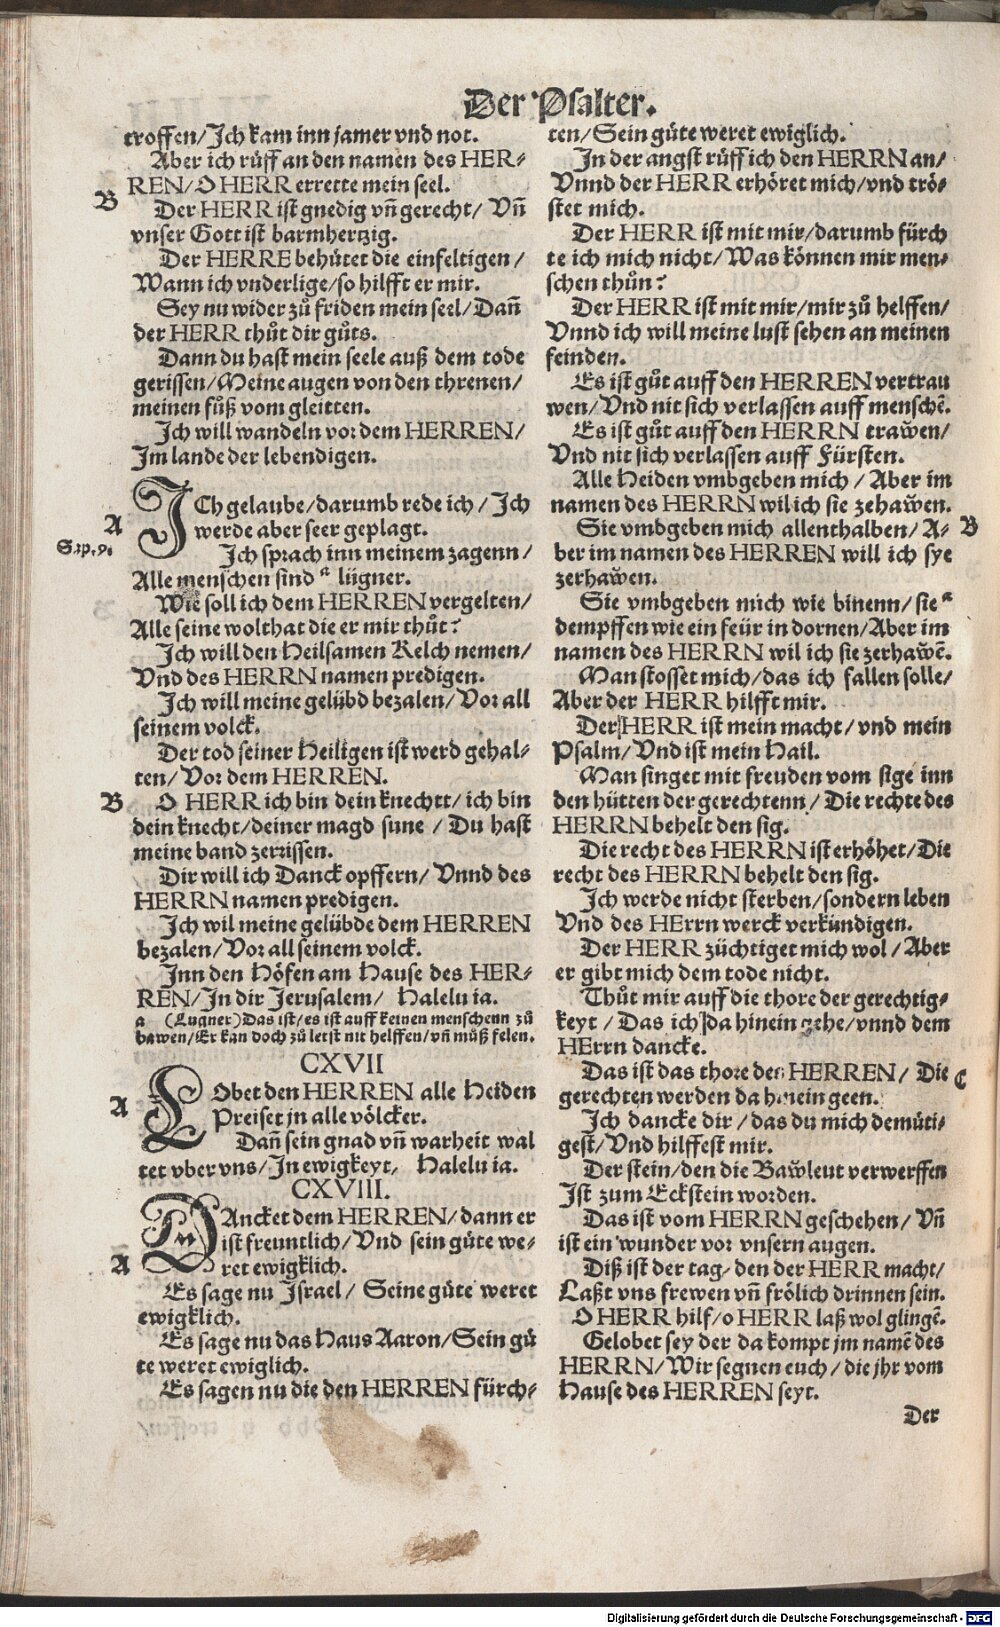 Der Psalter.
troffen/Ich kam inn jamer vnd not.
Aber ich rüff an den namen des HER-
REN/O HERR errette mein seel.
B
Der HERR ist gnedig vñ gerecht/ Vñ
vnser Gott ist barmhertzig.
Der HERRE behütet die einfeltigen/
Wann ich vnderlige/so hilfft er mir.
Sey nu wider zů friden mein seel/Dañ
der HERR thůt dir gůts.
Dann du hast mein seele auß dem tode
gerissen/Meine augen von den threnen/
meinen fůß vom gleitten.
Ich will wandeln vor dem HERREN/
Im lande der lebendigen.
A
ICh gelaube/darumb rede ich/ Ich
werde aber seer geplagt.
Ich sprach inn meinem zagenn/
Alle menschen sind ᵃ lügner.
Wie soll ich dem HERREN vergelten/
Alle seine wolthat die er mir thůt?
Ich will den Heilsamen Kelch nemen/
Vnd des HERRN namen predigen.
Ich will meine gelübd bezalen/Vor all
seinem volck.
Der tod seiner Heiligen ist werd gehal-
ten/Vor dem HERREN.
B
O HERR ich bin dein knechtt/ich bin
dein knecht/deiner magd sune / Du hast
meine band zerrissen.
Dir will ich Danck opffern/ Vnnd des
HERRN namen predigen.
Ich wil meine gelübde dem HERREN
bezalen/Vor all seinem volck.
Inn den Höfen am Hause des HER-
REN/In dir Jerusalem/ Halelu ia.
a (Lugner) Das ist/es ist auff keinen menschenn zů
bawen/Er kan doch zů letst nit helffen/vñ můß felen.
CXVII
A
LObet den HERREN alle Heiden
Preiset jn alle völcker.
Dañ sein gnad vñ warheit wal
tet vber vns/In ewigkeyt, Halelu ia.
CXVIII.
A
DAncket dem HERREN/dann er
ist freuntlich/Vnd sein güte we-
ret ewigklich.
Es sage nu Israel/ Seine güte weret
ewigklich.
Es sage nu das Haus Aaron/Sein gü
te weret ewiglich.
Es sagen nu die den HERREN fürch-
ten/Sein güte weret ewiglich.
In der angst rüff ich den HERRN an/
Vnnd der HERR erhöret mich/vnd trö-
stet mich.
Der HERR ist mit mir/darumb fürch
te ich mich nicht/Was können mir men-
schen thůn?
Der HERR ist mit mir/mir zů helffen/
Vnnd ich will meine lust sehen an meinen
feinden.
Es ist gůt auff den HERREN vertrau
wen/Vnd nit sich verlassen auff menschẽ.
Es ist gůt auff den HERRN traẘen/
Vnd nit sich verlassen auff Fürsten.
Alle Heiden vmbgeben mich / Aber im
namen des HERRN wil ich sie zehaẘen.
Sie vmbgeben mich allenthalben/ A-
B
ber im namen des HERREN will ich sye
zerhaẘen.
Sie vmbgeben mich wie binenn/sie ᵃ
dempffen wie ein feür in dornen/Aber im
namen des HERRN wil ich sie zerhaẘẽ.
Man stosset mich/das ich fallen solle/
Aber der HERR hilfft mir.
Der HERR ist mein macht/vnd mein
Psalm/Vnd ist mein Hail.
Man singet mit freuden vom sige inn
den hütten der gerechtenn/ Die rechte des
HERRN behelt den sig.
Die recht des HERRN ist erhöhet/Die
recht des HERRN behelt den sig.
Ich werde nicht sterben/sondern leben
Vnd des HErrn werck verkündigen.
Der HERR züchtiget mich wol/Aber
er gibt mich dem tode nicht.
Thůt mir auff die thore der gerechtig-
keyt / Das ich da hinein gehe/vnnd dem
HErrn dancke.
Das ist das thore des HERREN/ Die
C
gerechten werden da hinein geen.
Ich dancke dir/das du mich demüti-
gest/Vnd hilffest mir.
Der stein/den die Baẘleut verwerffen
Ist zum Eckstein worden.
Das ist vom HERRN geschehen/ Vñ
ist ein wunder vor vnsern augen.
Diß ist der tag- den der HERR macht/
Laßt vns frewen vñ frölich drinnen sein.
O HERR hilf/o HERR laß wol glingẽ.
Gelobet sey der da kompt jm namẽ des
HERRN/Wir segnen euch/die jhr vom
Hause des HERREN seyt.
Der
Digitalisierung gefördert durch die Deutsche Forschungsgemeinschaft - DFG